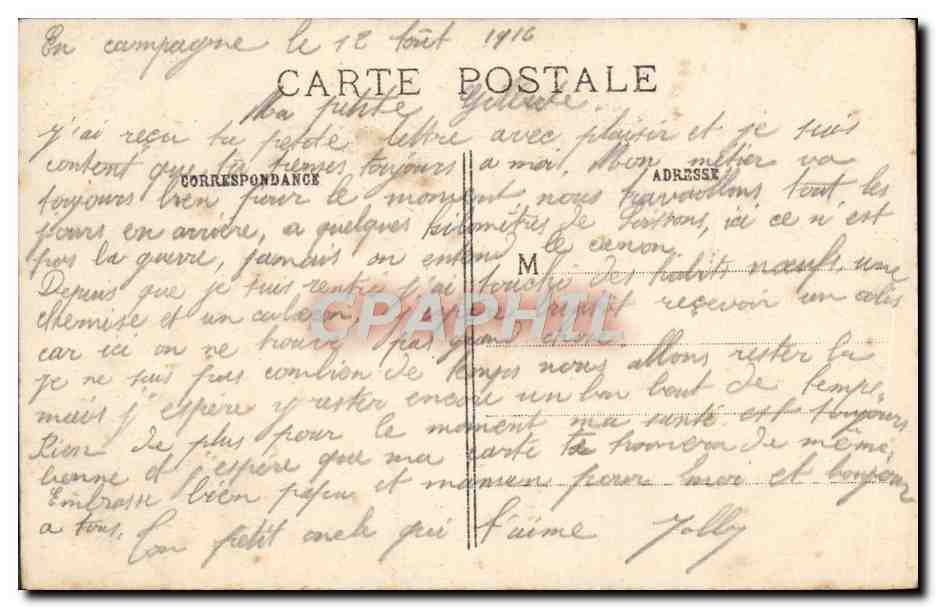 En campagne le 12 Août 1916
CARTE POSTALE
Ma petite
j'ai reçu ta petite lettre avec plaisir et je suis
content que tu penses toujours a moi, Mon métier va
CORRESPONDANCE
ADRESSE
toujours bien pour le moment nous travaillons tout les
jours en arrière, a quelques kilomètres de Soissons, ici ce n'est
pas la guerre, jamais on entend le canon,
M
Depuis que je suis rentré j'ai touché des habits neufs, une
chemise et un caleçon, j'espère bientôt reçevoir un colis
CPAPHIL
car ici on ne trouve pas grand chose.
je ne sais pas combien de temps nous allons rester la
mais j'espère y rester encore un bon bout de temps.
Rien de plus pour le moment ma santé est toujours
bonne et j'espère que ma carte te trouvera de même.
Embrasse bien papa et maman pour moi et bonjour
a tous. Ton petit oncle qui t'aime Jolly